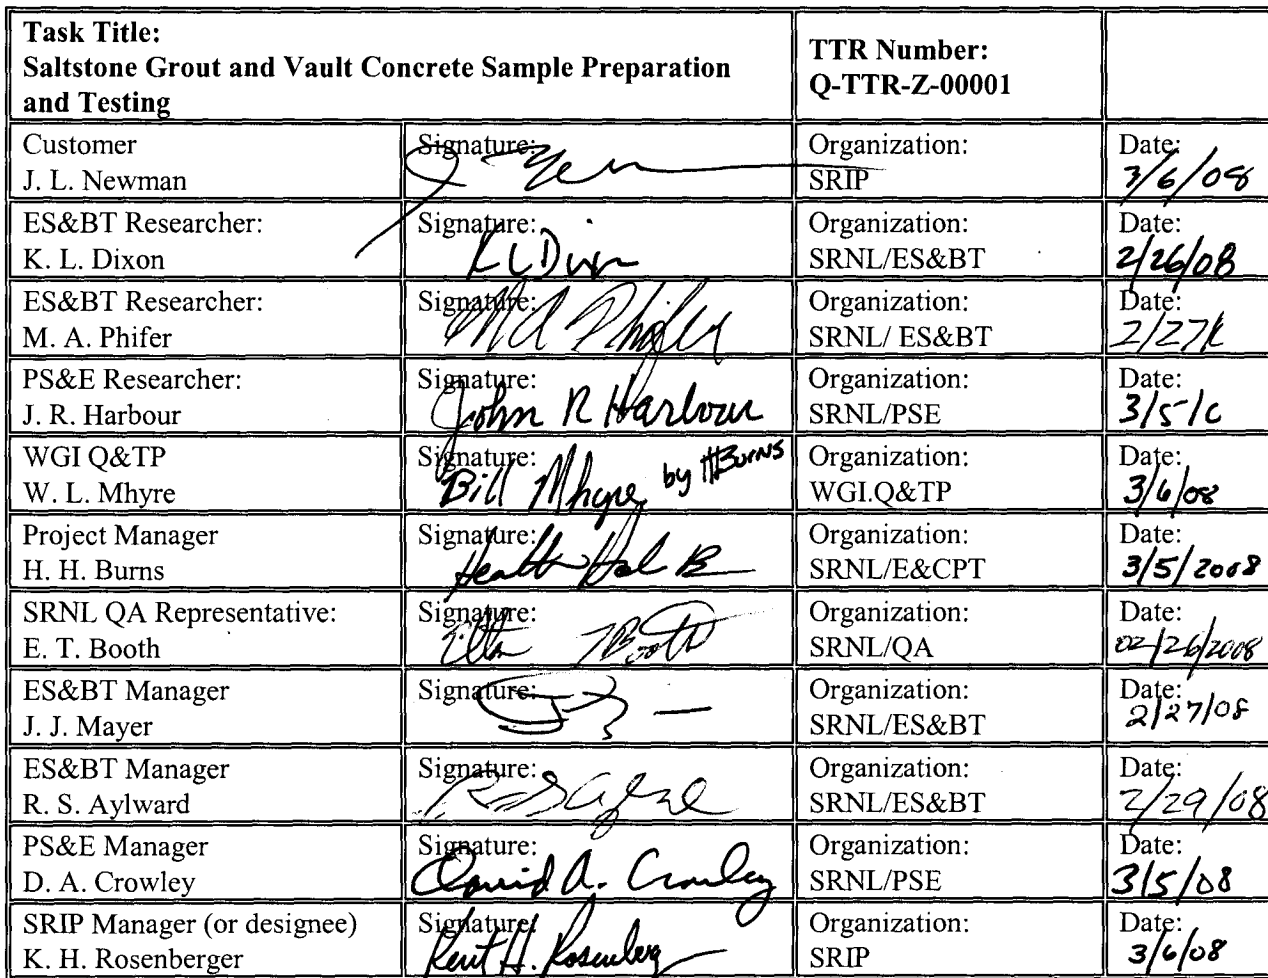 Task Title:
Saltstone Grout and Vault Concrete Sample Preparation
and Testing
TTR Number:
Q-TTR-Z-00001
Customer
J. L. Newman
Signature:
Organization:
SRIP
Date:
3/6/08
ES&BT Researcher:
K. L. Dixon
Signature:
K L Dixon
Organization:
SRNL/ES&BT
Date:
2/26/08
ES&BT Researcher:
M. A. Phifer
Signature:
MA Phifer
Organization:
SRNL/ ES&BT
Date:
2/27/
PS&E Researcher:
J. R. Harbour
Signature:
John R Harbour
Organization:
SRNL/PSE
Date:
3/5/
WGI Q&TP
W. L. Mhyre
Signature:
Bill Mhyre by HBurns
Organization:
WGI.Q&TP
Date:
3/6/08
Project Manager
H. H. Burns
Signature:
Organization:
SRNL/E&CPT
Date:
3/5/2008
SRNL QA Representative:
E. T. Booth
Signature:
Organization:
SRNL/QA
Date:
02/26/2008
ES&BT Manager
J. J. Mayer
Signature:
Organization:
SRNL/ES&BT
Date:
2/27/08
ES&BT Manager
R. S. Aylward
Signature:
Organization:
SRNL/ES&BT
Date:
2/29/08
PS&E Manager
D. A. Crowley
Signature:
David A. Crowley
Organization:
SRNL/PSE
Date:
3/5/08
SRIP Manager (or designee)
K. H. Rosenberger
Signature:
Kent H. Rosenberg
Organization:
SRIP
Date:
3/6/08